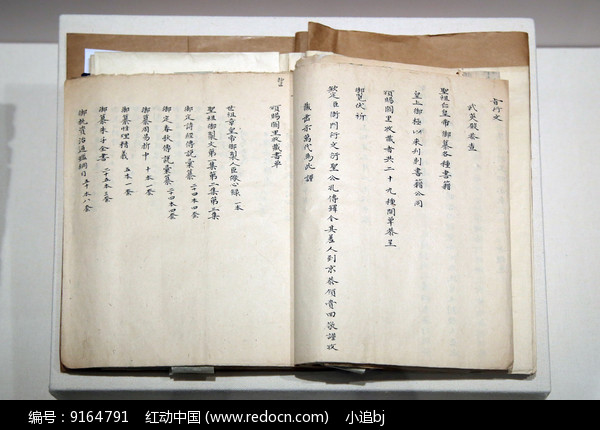 咨行文
武英殿奏查
聖祖仁皇帝御纂各種書籍
皇上御極以來刊刻書籍公同
頒賜闕里收藏者共二十九種開單恭呈
御覽伏祈
欽定臣衙門行文衍聖公孔傳鐸令其差人到京恭領賫回敬謹收
藏書永萬代為此謹
頒賜闕里收藏書單
世祖章皇帝御製人臣儆心錄 一本
聖祖御製文第一集第二集第三集
御定詩經傳說彙纂 二十四本四套
御定春秋傳說彙纂 二十四本四套
御纂周易折中 十本一套
御纂性理精義 五本一套
御纂朱子全書 二十五本三套
御批資治通鑑綱目 五十本八套
编号：9164791 红动中国 (www.redocn.com) 小追bj